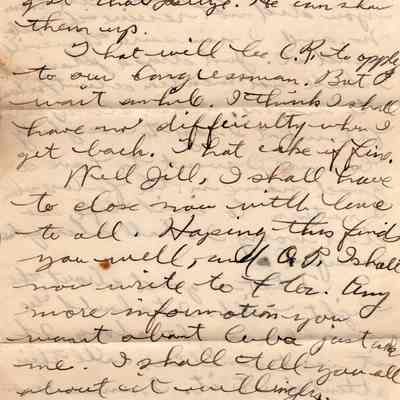 get that pettyz. He can show
them up.
That will be O.K. to apply
to our Congressman. But I
wait awhile. I think I shall
have no difficulty when I
get back. That case of Finn.
Well Jill, I shall have
to close now with love
to all. Hoping this finds
you well, and O.P. I shall
now write to Flor. Any
more information you
want about Cuba just ask
me. I shall tell you all
about it willingly.